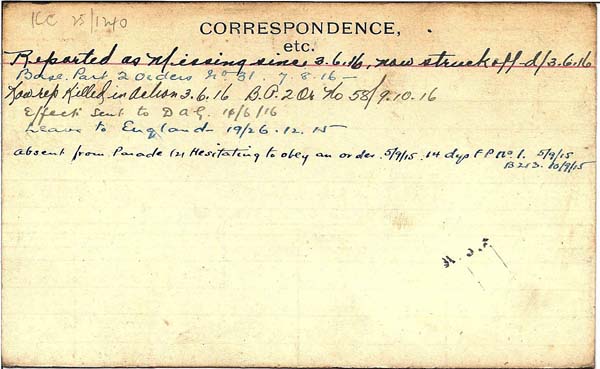 KC 25/1240
CORRESPONDENCE,
etc.
Reported as Missing since 3.6.16, now struck off d/3.6.16
Base. Part 2 Orders No 31. 7.8.16 -
Now rep Killed in Action 3.6.16 B.P. 2 Or No 58/9.10.16
Effects sent to D A G. 14/6/16
Leave to England 19/26.12.15
absent from Parade (2) Hesitating to obey an order. 5/9/15. 14 dys F P No 1. 5/9/15
B213. 10/9/15